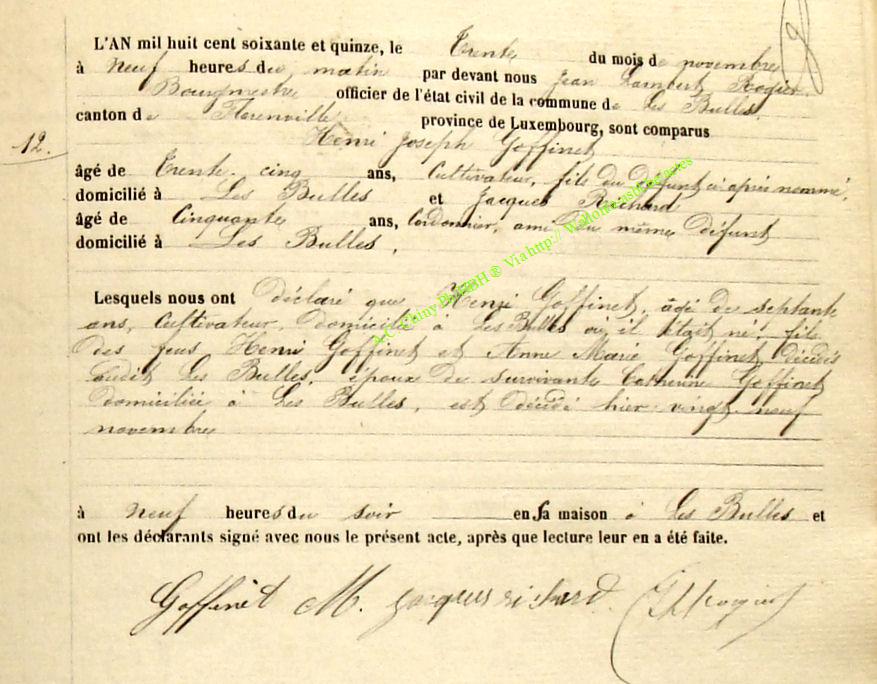 L'AN mil huit cent soixante et quinze, le Trente du mois de novembre
à neuf heures du matin par devant nous Jean Lambert Rogier
Bourgmestre officier de l'état civil de la commune de Les Bulles,
canton de Florenville province de Luxembourg, sont comparus
12. Henri Joseph Goffinet
âgé de Trente-cinq ans, Cultivateur, fils du défunt ci après nommé,
domicilié à Les Bulles et Jacques Richard
âgé de Cinquante ans, Cordonnier, ami du même défunt
domicilié à Les Bulles,
Lesquels nous ont déclaré que Henri Goffinet, âgé de septante
ans, Cultivateur, domicilié à Les Bulles où il était né, fils
des feus Henri Goffinet et Anne Marie Goffinet, décédés
audit Les Bulles, époux de survivante Catherine Goffinet
domiciliée à Les Bulles, est décédé hier vingt-neuf
novembre
à neuf heures du soir en sa maison à Les Bulles et
ont les déclarants signé avec nous le présent acte, après que lecture leur en a été faite.
Goffinet M. jacques richard
Via http://